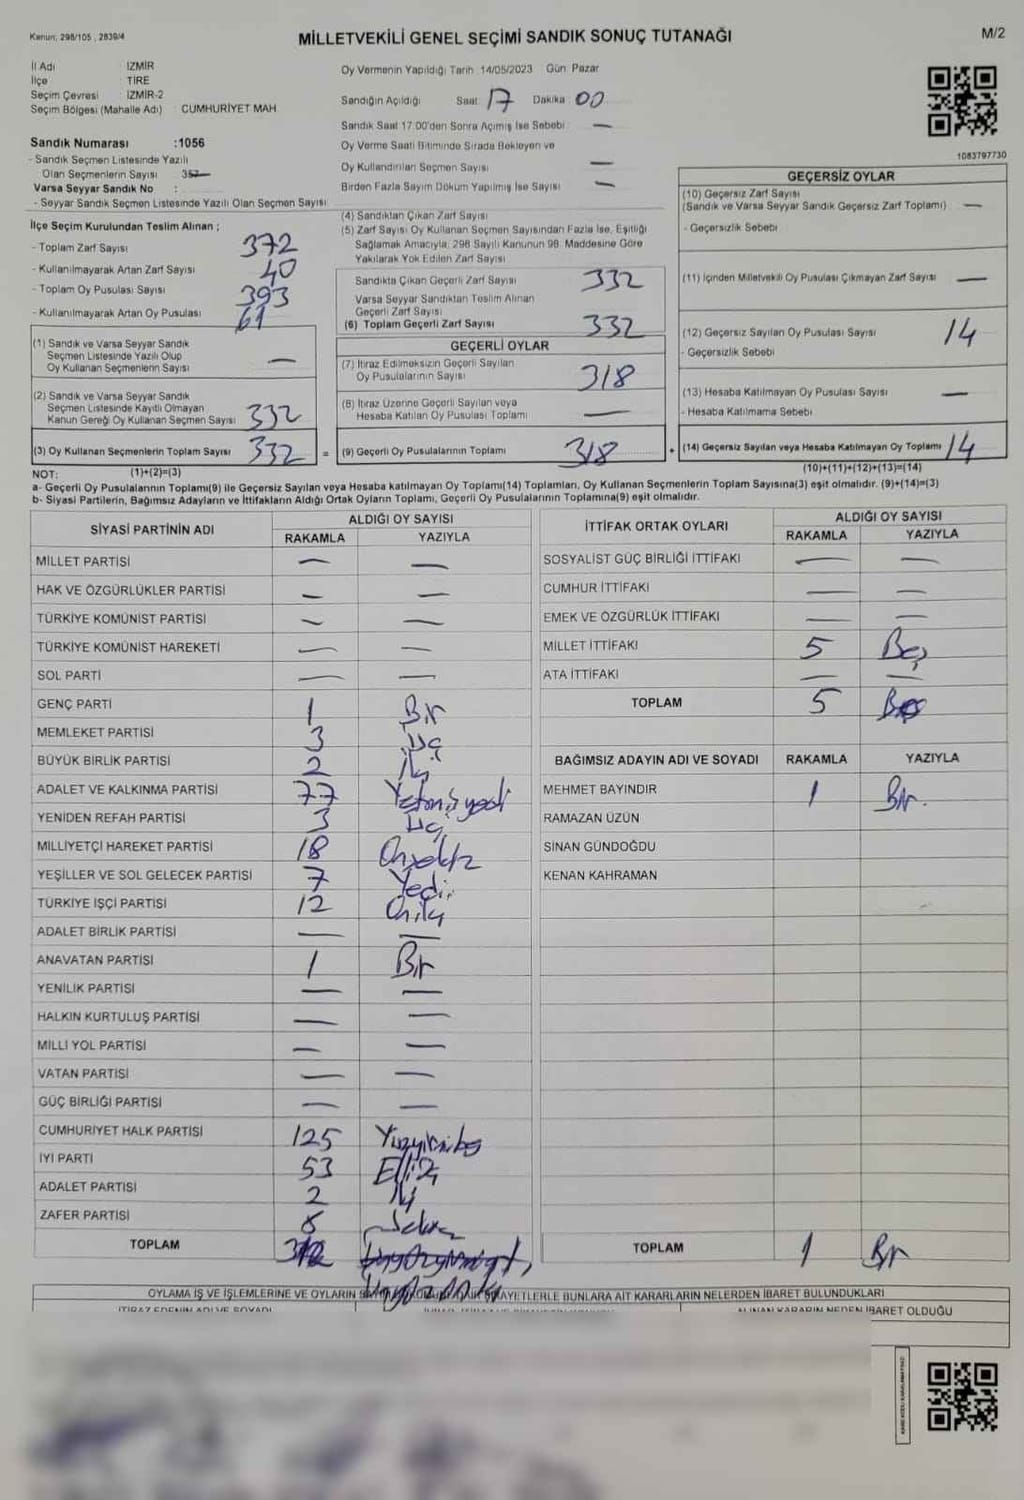 Kanun: 298/105 , 2839/4
MİLLETVEKİLİ GENEL SEÇİMİ SANDIK SONUÇ TUTANAĞI
M/2
İl Adı İZMİR
İlçe TİRE
Seçim Çevresi İZMİR-2
Seçim Bölgesi (Mahalle Adı) CUMHURİYET MAH.
Oy Vermenin Yapıldığı Tarih: 14/05/2023 Gün: Pazar
Sandığın Açıldığı Saat 17 Dakika 00
Sandık Saat 17:00'den Sonra Açılmış İse Sebebi : —
Oy Verme Saati Bitiminde Sırada Bekleyen ve
Oy Kullandırılan Seçmen Sayısı —
Birden Fazla Sayım Döküm Yapılmış İse Sayısı —
Sandık Numarası :1056
- Sandık Seçmen Listesinde Yazılı
Olan Seçmenlerin Sayısı
Varsa Seyyar Sandık No :
- Seyyar Sandık Seçmen Listesinde Yazılı Olan Seçmen Sayısı
1083797730
İlçe Seçim Kurulundan Teslim Alınan ;
- Toplam Zarf Sayısı 372
- Kullanılmayarak Artan Zarf Sayısı 40
- Toplam Oy Pusulası Sayısı 393
- Kullanılmayarak Artan Oy Pusulası 61
(1) Sandık ve Varsa Seyyar Sandık
Seçmen Listesinde Yazılı Olup
Oy Kullanan Seçmenlerin Sayısı —
(2) Sandık ve Varsa Seyyar Sandık
Seçmen Listesinde Kayıtlı Olmayan
Kanun Gereği Oy Kullanan Seçmen Sayısı 332
(3) Oy Kullanan Seçmenlerin Toplam Sayısı 332
(4) Sandıktan Çıkan Zarf Sayısı
(5) Zarf Sayısı Oy Kullanan Seçmen Sayısından Fazla İse, Eşitliği
Sağlamak Amacıyla, 298 Sayılı Kanunun 98. Maddesine Göre
Yakılarak Yok Edilen Zarf Sayısı
Sandıkta Çıkan Geçerli Zarf Sayısı 332
Varsa Seyyar Sandıktan Teslim Alınan
Geçerli Zarf Sayısı
(6) Toplam Geçerli Zarf Sayısı 332
GEÇERLİ OYLAR
(7) İtiraz Edilmeksizin Geçerli Sayılan
Oy Pusulalarının Sayısı 318
(8) İtiraz Üzerine Geçerli Sayılan veya
Hesaba Katılan Oy Pusulası Toplamı —
= (9) Geçerli Oy Pusulalarının Toplamı 318
GEÇERSİZ OYLAR
(10) Geçersiz Zarf Sayısı
(Sandık ve Varsa Seyyar Sandık Geçersiz Zarf Toplamı) —
- Geçersizlik Sebebi
(11) İçinden Milletvekili Oy Pusulası Çıkmayan Zarf Sayısı —
(12) Geçersiz Sayılan Oy Pusulası Sayısı 14
- Geçersizlik Sebebi
(13) Hesaba Katılmayan Oy Pusulası Sayısı —
- Hesaba Katılmama Sebebi
+ (14) Geçersiz Sayılan veya Hesaba Katılmayan Oy Toplamı 14
NOT: (1)+(2)=(3)
(10)+(11)+(12)+(13)=(14)
a- Geçerli Oy Pusulalarının Toplamı(9) ile Geçersiz Sayılan veya Hesaba katılmayan Oy Toplamı(14) Toplamları, Oy Kullanan Seçmenlerin Toplam Sayısına(3) eşit olmalıdır. (9)+(14)=(3)
b- Siyasi Partilerin, Bağımsız Adayların ve İttifakların Aldığı Ortak Oyların Toplamı, Geçerli Oy Pusulalarının Toplamına(9) eşit olmalıdır.
SİYASİ PARTİNİN ADI ALDIĞI OY SAYISI
RAKAMLA YAZIYLA
MİLLET PARTİSİ — —
HAK VE ÖZGÜRLÜKLER PARTİSİ — —
TÜRKİYE KOMÜNİST PARTİSİ — —
TÜRKİYE KOMÜNİST HAREKETİ — —
SOL PARTİ — —
GENÇ PARTİ 1 Bir
MEMLEKET PARTİSİ 3 Üç
BÜYÜK BİRLİK PARTİSİ 2 İki
ADALET VE KALKINMA PARTİSİ 77 Yetmişyedi
YENİDEN REFAH PARTİSİ 3 Üç
MİLLİYETÇİ HAREKET PARTİSİ 18 Onsekiz
YEŞİLLER VE SOL GELECEK PARTİSİ 7 Yedi
TÜRKİYE İŞÇİ PARTİSİ 12 Oniki
ADALET BİRLİK PARTİSİ — —
ANAVATAN PARTİSİ 1 Bir
YENİLİK PARTİSİ — —
HALKIN KURTULUŞ PARTİSİ — —
MİLLİ YOL PARTİSİ — —
VATAN PARTİSİ — —
GÜÇ BİRLİĞİ PARTİSİ — —
CUMHURİYET HALK PARTİSİ 125 Yüzyirmibeş
İYİ PARTİ 53 Elliüç
ADALET PARTİSİ 2 İki
ZAFER PARTİSİ 8 Sekiz
TOPLAM 312
İTTİFAK ORTAK OYLARI ALDIĞI OY SAYISI
RAKAMLA YAZIYLA
SOSYALİST GÜÇ BİRLİĞİ İTTİFAKI — —
CUMHUR İTTİFAKI — —
EMEK VE ÖZGÜRLÜK İTTİFAKI — —
MİLLET İTTİFAKI 5 Beş
ATA İTTİFAKI — —
TOPLAM 5 Beş
BAĞIMSIZ ADAYIN ADI VE SOYADI RAKAMLA YAZIYLA
MEHMET BAYINDIR 1 Bir.
RAMAZAN ÜZÜN
SİNAN GÜNDOĞDU
KENAN KAHRAMAN
TOPLAM 1 Bir
OYLAMA İŞ VE İŞLEMLERİNE VE OYLARIN ŞİKAYETLERLE BUNLARA AİT KARARLARIN NELERDEN İBARET BULUNDUKLARI
İTİRAZ EDENİN ADI VE SOYADI
ALINAN KARARIN NEDEN İBARET OLDUĞU